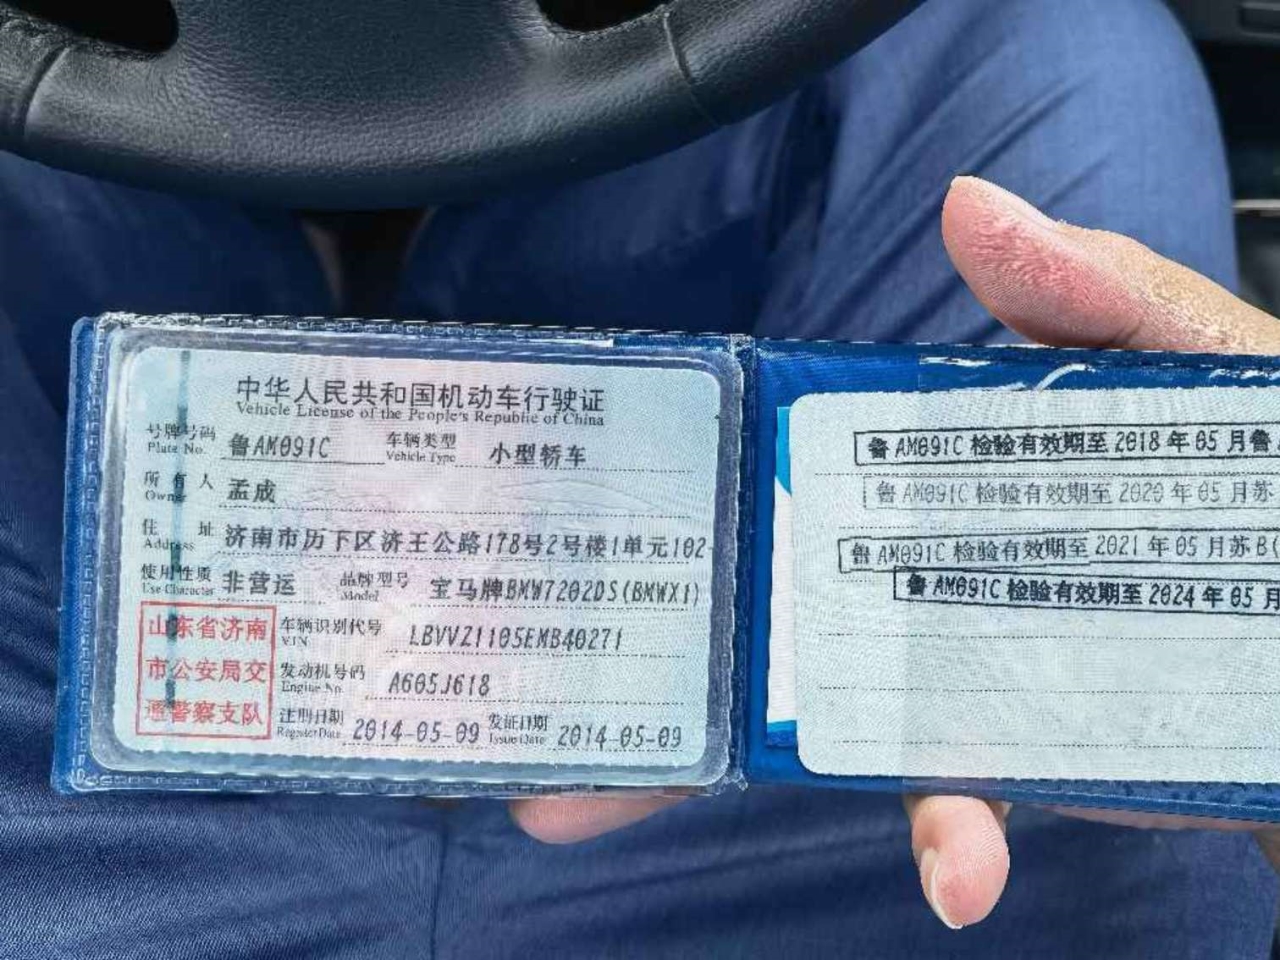 中华人民共和国机动车行驶证
Vehicle License of the People's Republic of China
号牌号码 鲁AM091C 车辆类型 小型轿车
Plate No. Vehicle Type
所有人 孟成
Owner
住址 济南市历下区济王公路178号2号楼1单元102-
Address
使用性质 非营运 品牌型号 宝马牌BMW7202DS(BMWX1)
Use Character Model
山东省济南
市公安局交
通警察支队
车辆识别代号 LBVVZ1105EMB40271
VIN
发动机号码 A605J618
Engine No.
注册日期 2014-05-09 发证日期 2014-05-09
Register Date Issue Date
鲁AM091C 检验有效期至 2018年05月鲁
鲁AM091C 检验有效期至 2020年05月苏
鲁AM091C 检验有效期至 2021年05月苏B(
鲁AM091C 检验有效期至 2024年05月